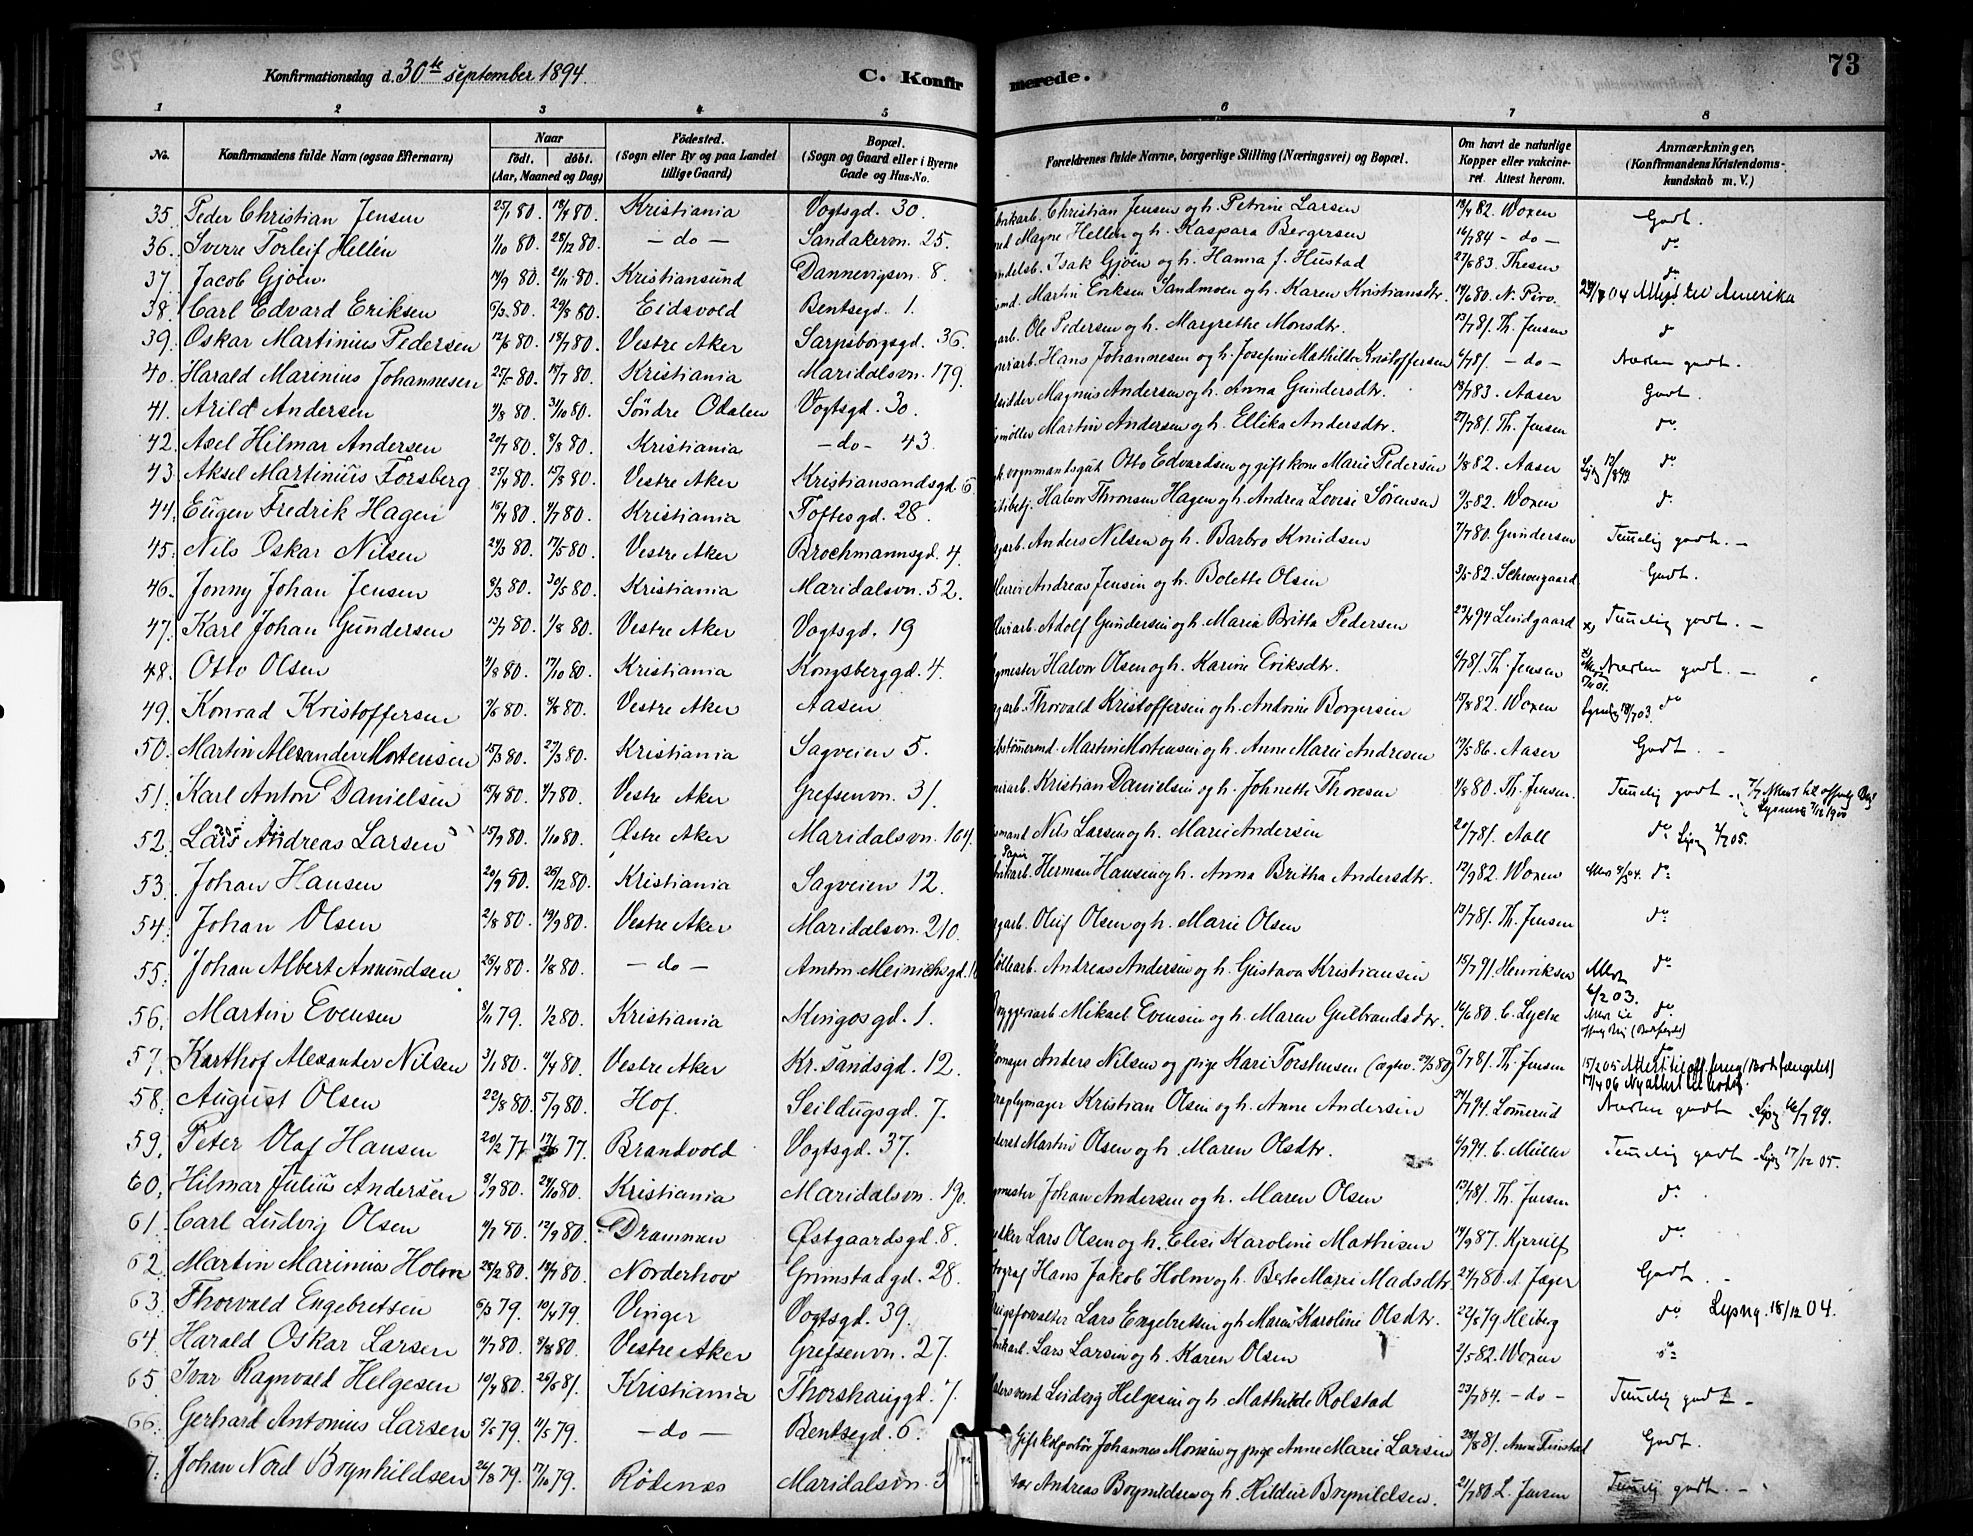 Konfirmationsdag d. 30te September 1894.
C. Konfirmerede.
73
1 2 3 4 5 6 7 8
No. Konfirmandens fulde Navn (ogsaa Efternavn) Naar født. døbt. (Aar, Maaned og Dag) Fødested. (Sogn eller By og paa Landet tillige Gaard) Bopæl. (Sogn og Gaard eller i Byerne Gade og Hus-No. Forældrenes fulde Navne, borgerlige Stilling (Næringsvei) og Bopæl. Om havt de naturlige Kopper eller vakcineret. Attest herom. Anmærkninger. (Konfirmandens Kristendomskundskab m. V.)
35. Peder Christian Jensen 25/1 80. 18/4 80. Kristiania Vogtsgd. 30. Christian Jensen og h. Petrine Larsen 19/4 82. Woxen Godt.
36. Sverre Torleif Hellén 1/10 80. 28/12 80. — do — Sandakervn. 25. Magne Hellen og h. Kaspara Bergersen 16/7 84 — do — do
37. Jacob Gjöen 14/9 80. 21/11 80. Kristiansund Dannevigsvn. 8. Isak Gjöen og h. Hanna f. Hustad 27/6 83. Thesen do
38. Carl Edvard Eriksen 5/3 80. 29/8 80. Eidsvold Bentsegd. 1. Martin Eriksen Sandmoen og h. Karen Kristiansdtr. 14/6 80. N. Piro. 04 Attest til Amerika
39. Oskar Martinius Pedersen 12/6 80. 18/7 80. Vestre Aker Sarpsborgsgd. 36. Ole Pedersen og h. Margrethe Monsdtr. 13/7 81. Th. Jensen do
40. Harald Marinius Johannesen 25/5 80. 18/7 80. Kristiania Maridalsvn. 179. Hans Johannesen og h. Josefine Mathilde Kristoffersen 6/7 81. — do — Næsten godt.
41. Arild Andersen 4/8 80. 31/10 80. Söndre Odalen Vogtsgd. 30. Magnus Andersen og h. Anna Gundersdtr. 19/7 83. Aaser Godt.
42. Axel Hilmar Andersen 20/7 80. 8/8 80. Kristiania — do — 43. Martin Andersen og h. Ellika Andersdtr. 27/7 81. Th. Jensen do
43. Aksel Martinius Forsberg 25/4 80. 15/8 80. Vestre Aker Kristiansandsgd. 6 vognmandsgut Otto Edvardsen og gift kone Marie Pedersen 1/8 82. Aaser do
44. Eugen Fredrik Hagen 15/4 80. 4/7 80. Kristiania Toftesgd. 28. Halvor Thronsen Hagen og h. Andrea Lovise Sørensen 9/5 82. Woxen do
45. Nils Oskar Nilsen 24/3 80. 17/5 80. Vestre Aker Brochmannsgd. 4. Anders Nilsen og h. Barbro Knudsen 7/7 80. Gundersen Temmelig godt. —
46. Jonny Johan Jensen 8/3 80. 30/5 80. Kristiania Maridalsvn. 52. Murer Andreas Jensen og h. Bolette Olsen 3/5 82. Schwegaard Godt.
47. Karl Johan Gundersen 13/7 80. 1/8 80. Vestre Aker Vogtsgd. 19 Adolf Gundersen og h. Maria Britta Pedersen 23/4 94 Lundgaard Temmelig godt. —
48. Otto Olsen 4/8 80. 17/10 80. Kristiania Kongsberggd. 4. Halvor Olsen og h. Karine Eriksdtr. 6/7 81. Th. Jensen Næsten godt. —
49. Konrad Kristoffersen 2/6 80. 4/8 80. Vestre Aker Aasen Thorvald Kristoffersen og h. Andrine Borgersen 15/8 82. Woxen do
50. Martin Alexander Mortensen 15/3 80. 27/3 80. Kristiania Sagveien 5. Martin Mortensen og h. Anne Marie Andresen 17/5 86. Aaser Godt.
51. Karl Anton Danielsen 15/4 80. 4/7 80. Vestre Aker Grefsenvn. 31. Kristian Danielsen og h. Johnette Thoresen 4/8 80. Th. Jensen. Temmelig godt
52. Lars Andreas Larsen 15/7 80. 1/10 80. Østre Aker Maridalsvn. 104. Nils Larsen og h. Marie Andersen 20/7 81. Aall do
53. Johan Hansen 20/9 80. 26/12 80. Kristiania Sagveien 12. Herman Hansen og h. Anna Britha Andersdtr. 12/9 82. Woxen do
54. Johan Olsen 2/8 80. 19/9 80. Vestre Aker Maridalsvn. 210. Oluf Olsen og h. Marie Olsen 13/7 81. Th. Jensen do
55. Johan Albert Amundsen 25/4 80. 1/8 80. — do — Amtm. Meinichsgd. Andreas Andersen og h. Gustava Kristiansen 15/7 91. Henriksen do
56. Martin Evensen 8/11 79. 1/2 80. Kristiania Kingosgd. 1. Bryggeriarb. Mikael Evensen og h. Maren Gulbrandsdtr. 16/6 80. C. Lyche do
57. Karthof Alexander Nilsen 3/1 80. 4/4 80. Vestre Aker Kr.sandsgd. 12. Anders Nilsen og pige Kari Torstensen 6/7 81. Th. Jensen
58. August Olsen 22/8 80. 5/9 80. Hof. Seildugsgd. 7. Kristian Olsen og h. Anne Andersen 24/7 94. Lomerud Næsten godt
59. Peter Olaf Hansen 20/2 77 77. Brandvold Vogtsgd. 37. Martin Olsen og h. Maren Olsdtr. 6/9 94. C. Müller Temmelig godt 17/12 05.
60. Hilmar Julius Andersen 8/9 80. 24/10 80. Kristiania Maridalsvn. 190. Johan Andersen og h. Maren Olsen 13/7 81. Th. Jensen do
61. Carl Ludvig Olsen 4/7 80. 12/9 80. Drammen Østgaardsgd. 8. Lars Olsen og h. Elise Karoline Mathisen 14/9 87. Kjerulf do
62. Martin Marinius Holm 25/2 80. 18/7 80. Norderhov Grimstadgd. 28. Hans Jakob Holm og h. Berte Marie Madsdtr. 27/7 80. A. Jager Godt.
63. Thorvald Engebretsen 6/3 79. 10/4 79. Vinger Vogtsgd. 39. Lars Engebretsen og h. Marie Karoline Olsdtr. 22/8 79 Heiberg do Lysng. 18/12 04.
64. Harald Oskar Larsen 4/7 80. 8/8 80. Vestre Aker Grefsenvn. 27. Lars Larsen og h. Karen Olsen 2/5 82. Woxen do
65. Ivar Ragnvald Helgesen 10/4 80. 26/6 81. Kristiania Thorshauggd. 7. Ludvig Helgesen og h. Mathilde Rolstad 23/7 84. — do — Temmelig godt —
66. Gerhard Antonius Larsen 5/5 79. 11/5 79. — do — Bentsegd. 6. Gift kolportör Johannes Monsen og pige Anne Marie Larsen 24/8 81. Godt.
7. Johan Nord Brynhildsen 26/8 79. 17/10 79. Rödenæs Maridalsvn. 3 Andreas Brynildsen og h. Hildur Brynildsen. 21/7 80. L. Jensen Temmelig godt. —